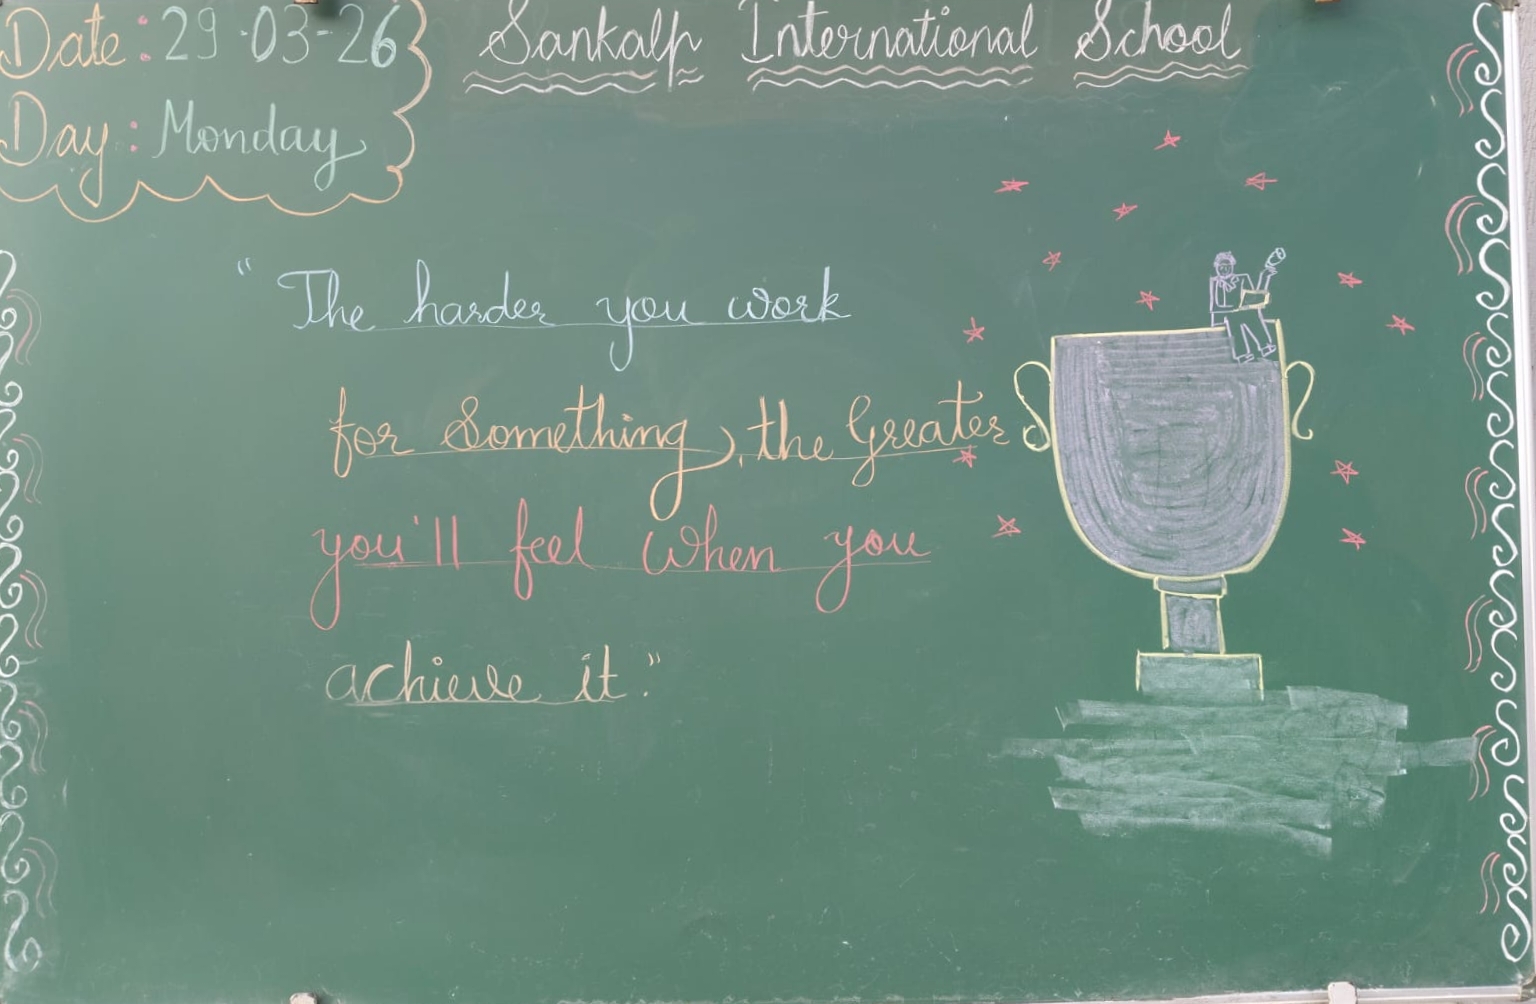 Date : 29-03-26
Sankalp International School
Day : Monday
“ The harder you work
for Something, the Greater
you'll feel when you
achieve it.”